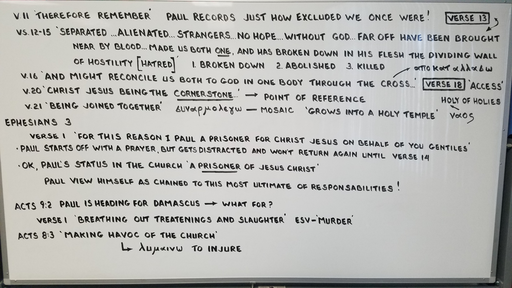 V.11 'THEREFORE REMEMBER' PAUL RECORDS JUST HOW EXCLUDED WE ONCE WERE! VERSE 13
VS.12-15 'SEPARATED...ALIENATED...STRANGERS...NO HOPE...WITHOUT GOD...FAR OFF HAVE BEEN BROUGHT
NEAR BY BLOOD...MADE US BOTH ONE, AND HAS BROKEN DOWN IN HIS FLESH THE DIVIDING WALL
OF HOSTILITY [HATRED] 1. BROKEN DOWN 2. ABOLISHED 3. KILLED αποκαταλλαδω
V.16 'AND MIGHT RECONCILE US BOTH TO GOD IN ONE BODY THROUGH THE CROSS...' VERSE 18 'ACCESS'
V.20 'CHRIST JESUS BEING THE CORNERSTONE' → POINT OF REFERENCE HOLY OF HOLIES
V.21 'BEING JOINED TOGETHER' συναρμολεγω — MOSAIC 'GROWS INTO A HOLY TEMPLE' ναος
EPHESIANS 3
VERSE 1 'FOR THIS REASON I PAUL A PRISONER FOR CHRIST JESUS ON BEHALF OF YOU GENTILES'
• PAUL STARTS OFF WITH A PRAYER, BUT GETS DISTRACTED AND WON'T RETURN AGAIN UNTIL VERSE 14
• OK, PAUL'S STATUS IN THE CHURCH 'A PRISONER OF JESUS CHRIST'
PAUL VIEW HIMSELF AS CHAINED TO THIS MOST ULTIMATE OF RESPONSABILITIES!
ACTS 9:2 PAUL IS HEADING FOR DAMASCUS → WHAT FOR?
VERSE 1 'BREATHING OUT TREATENINGS AND SLAUGHTER' ESV-'MURDER'
ACTS 8:3 'MAKING HAVOC OF THE CHURCH'
↳ λυμαινω TO INJURE